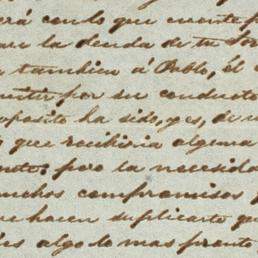 erá con lo que cuente p
la deuda de tu
tambien á Pablo, él
por su conducto
oposito ha sido, y es, de
que recibiria alguna
pero la necesida
muchos compromisos
hacen suplicarte qu
es algo lo mas pronto